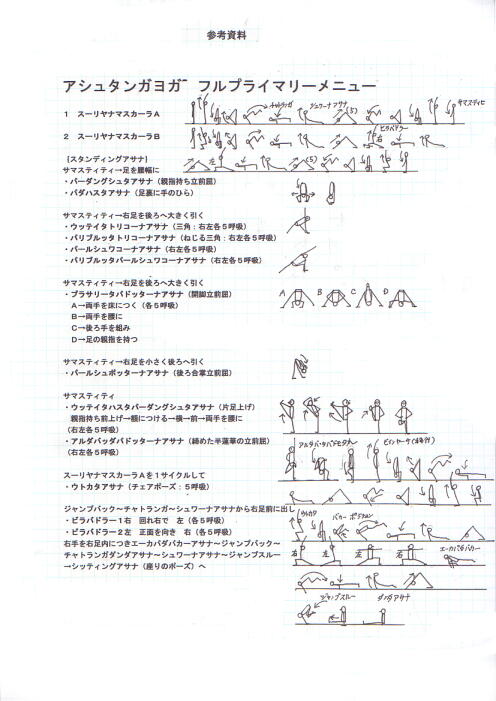 参考資料
アシュタンガヨガ フルプライマリーメニュー
1 スーリヤナマスカーラA
チャトランガ
シュワーナアサナ
(5)
サマスティヒ
2 スーリヤナマスカーラB
ビラバドラー
右
[スタンディングアサナ]
左
(5)
サマスティティー→足を腰幅に
・パーダングシュタアサナ(親指持ち立前屈)
・パダハスタアサナ(足裏に手のひら)
サマスティティ→右足を後ろへ大きく引く
・ウッテイタトリコーナアサナ(三角:右左各5呼吸)
・パリブルッタトリコーナアサナ(ねじる三角:右左各5呼吸)
・パールシュワコーナアサナ(右左各5呼吸)
・パリブルッタパールシュワコーナアサナ(右左各5呼吸)
サマスティティ→右足を後ろへ大きく引く
・プラサリータパドッターナアサナ(開脚立前屈)
A B C D
A→両手を床につく(各5呼吸)
B→両手を腰に
C→後ろ手を組み
D→足の親指を持つ
サマスティティ→右足を小さく後ろへ引く
・パールシュボッターナアサナ(後ろ合掌立前屈)
サマスティティ
・ウッテイタハスタパーダングシュタアサナ(片足上げ)
親指持ち前上げー額につけるー横ー前ー両手を腰に
(右左各5呼吸)
・アルダバッダパドッターナアサナ(締めた半蓮華の立前屈)
(右左各5呼吸)
スーリヤナマスカーラAを1サイクルして
・ウトカタアサナ(チェアポーズ:5呼吸)
ジャンプバック〜チャトランガ〜シュワーナアサナから右足前に出し
ウトカタ
・ビラバドラー1右 回れ右で 左(各5呼吸)
・ビラバドラー2左 正面を向き 右(各5呼吸)
右 左 左 右
右手を右足内につきエーカパダバカーアサナ〜ジャンプバック〜
チャトランガダンダアサナ〜シュワーナアサナ〜ジャンプスルー
→シッティングアサナ(座りのポーズ)へ
ジャンプスルー
ダンダアサナ